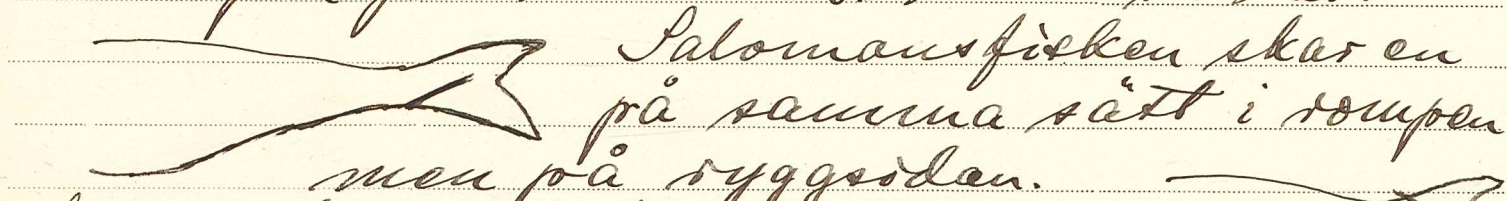 Salomonsfisken skar en
på samma sätt i rompen
men på ryggsidan.